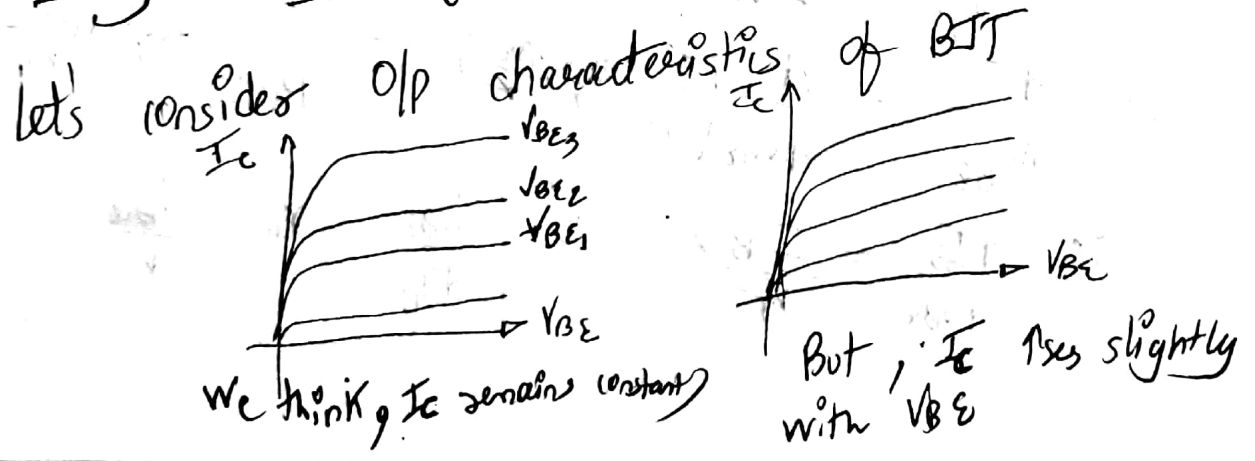 Let's consider O/P characteristics of BJT
Ic
VBE3
VBE2
VBE1
VBE
We think, Ic remains constant
Ic
VBE
But, Ic ↑ses slightly
with VBE